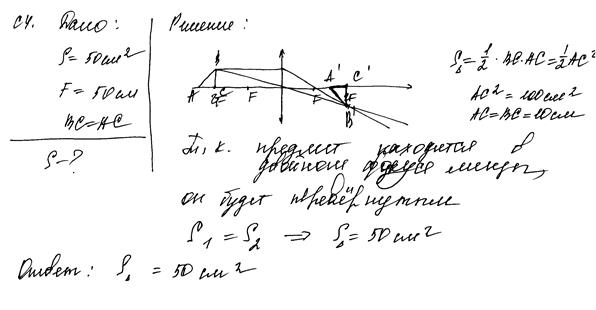 С4. Дано:
S = 50 см²
F = 50 см
BC = AC
S - ?
Решение:
B
A 2F C F F A' C' 2F
B'
S△ = 1/2 · BC·AC = 1/2 AC²
AC² = 100 см²
AC = BC = 10 см
Т.к. предмет находится в
двойном фокусе линзы,
он будет перевёрнутым
S₁ = S₂ ⇒ S△ = 50 см²
Ответ: S△ = 50 см²